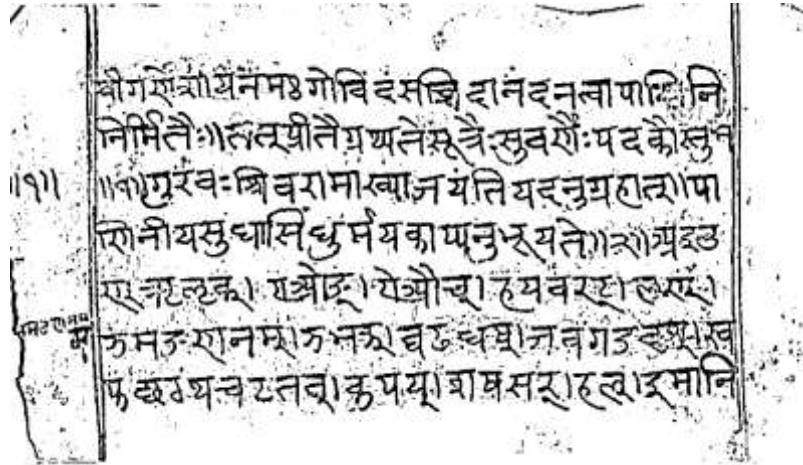 श्रीगणेशायनमः गोविंदंसच्चिदानंदंनत्वापाणिनि
निर्मितैः॥तत्प्रीतैग्रथ्यतेसूत्रैःसुवर्णैःपदकौस्तु
॥१॥ ॥१॥गुरवःशिवरामाख्याजयंतियदनुग्रहात्॥पा
णिनीयसुधासिंधुर्मयकाप्यनुभूयते॥२॥अइउ
ण्ऋऌक्। एओङ्।ऐऔच्।हयवरट्।लण्।
ञमङणनम्।झभञ्।घढधष्।जबगडदश्।ख
फछठथचटतव्।कपय्।शषसर्।हल्।इमानि